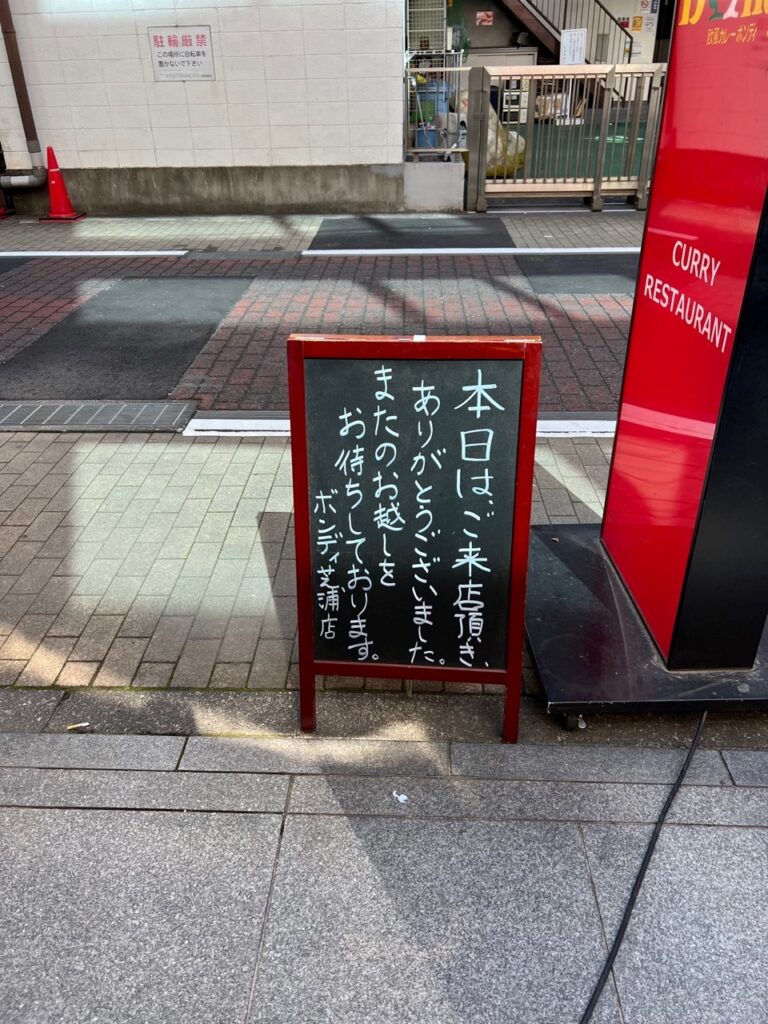 本日は、ご来店頂き、
ありがとうございました。
またのお越しを
お待ちしております。
ボンディ芝浦店
欧風カレーボンディ
CURRY
RESTAURANT
駐輪厳禁
この場所に自転車を
置かないで下さい